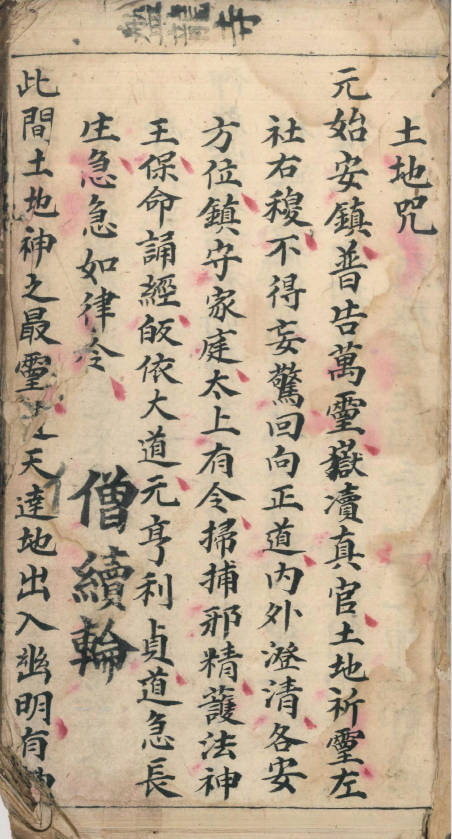 盤龍寺
土地咒
元始安鎮普告萬靈嶽瀆真官土地祈靈左
社右稷不得妄驚回向正道內外澄清各安
方位鎮守家庭太上有令掃捕邪精護法神
王保命誦經皈依大道元亨利貞道急長
生急急如律令
僧續輪
此間土地神之最靈天達地出入幽明有